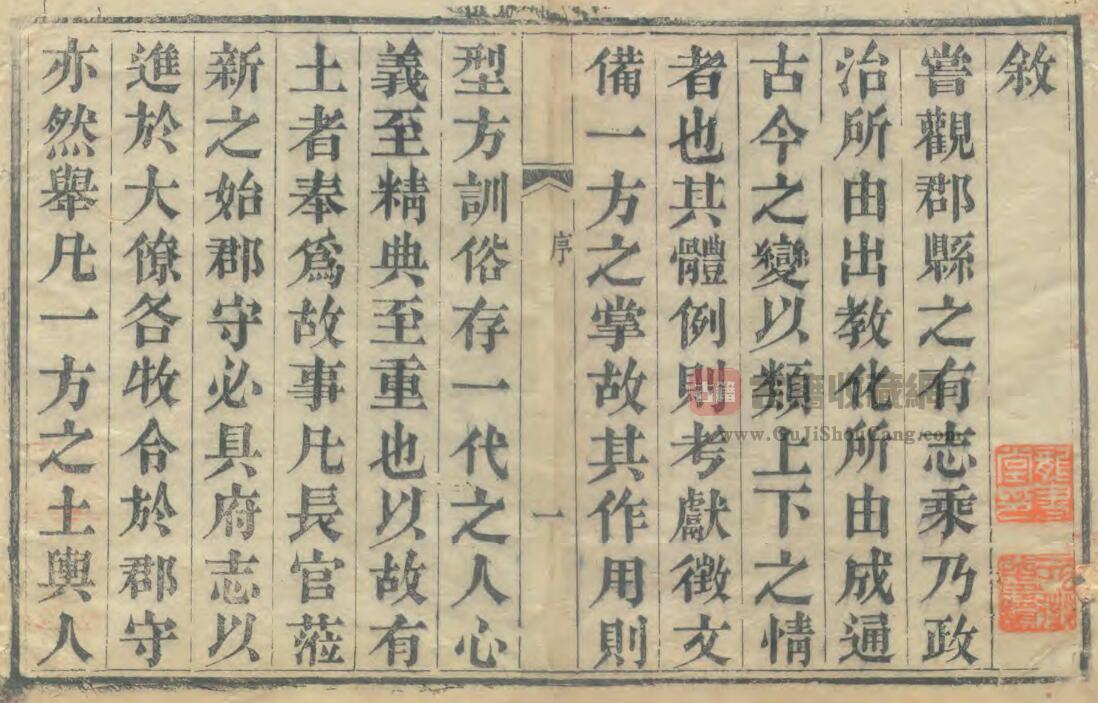 敘
嘗觀郡縣之有志乘乃政
治所由出教化所由成通
古今之變以類上下之情
者也其體例則考獻徵文
備一方之掌故其作用則
序
一
型方訓俗存一代之人心
義至精典至重也以故有
土者奉爲故事凡長官蒞
新之始郡守必具府志以
進於大僚各牧合於郡守
亦然舉凡一方之土輿人
古籍
www.GuJiShouCang.com